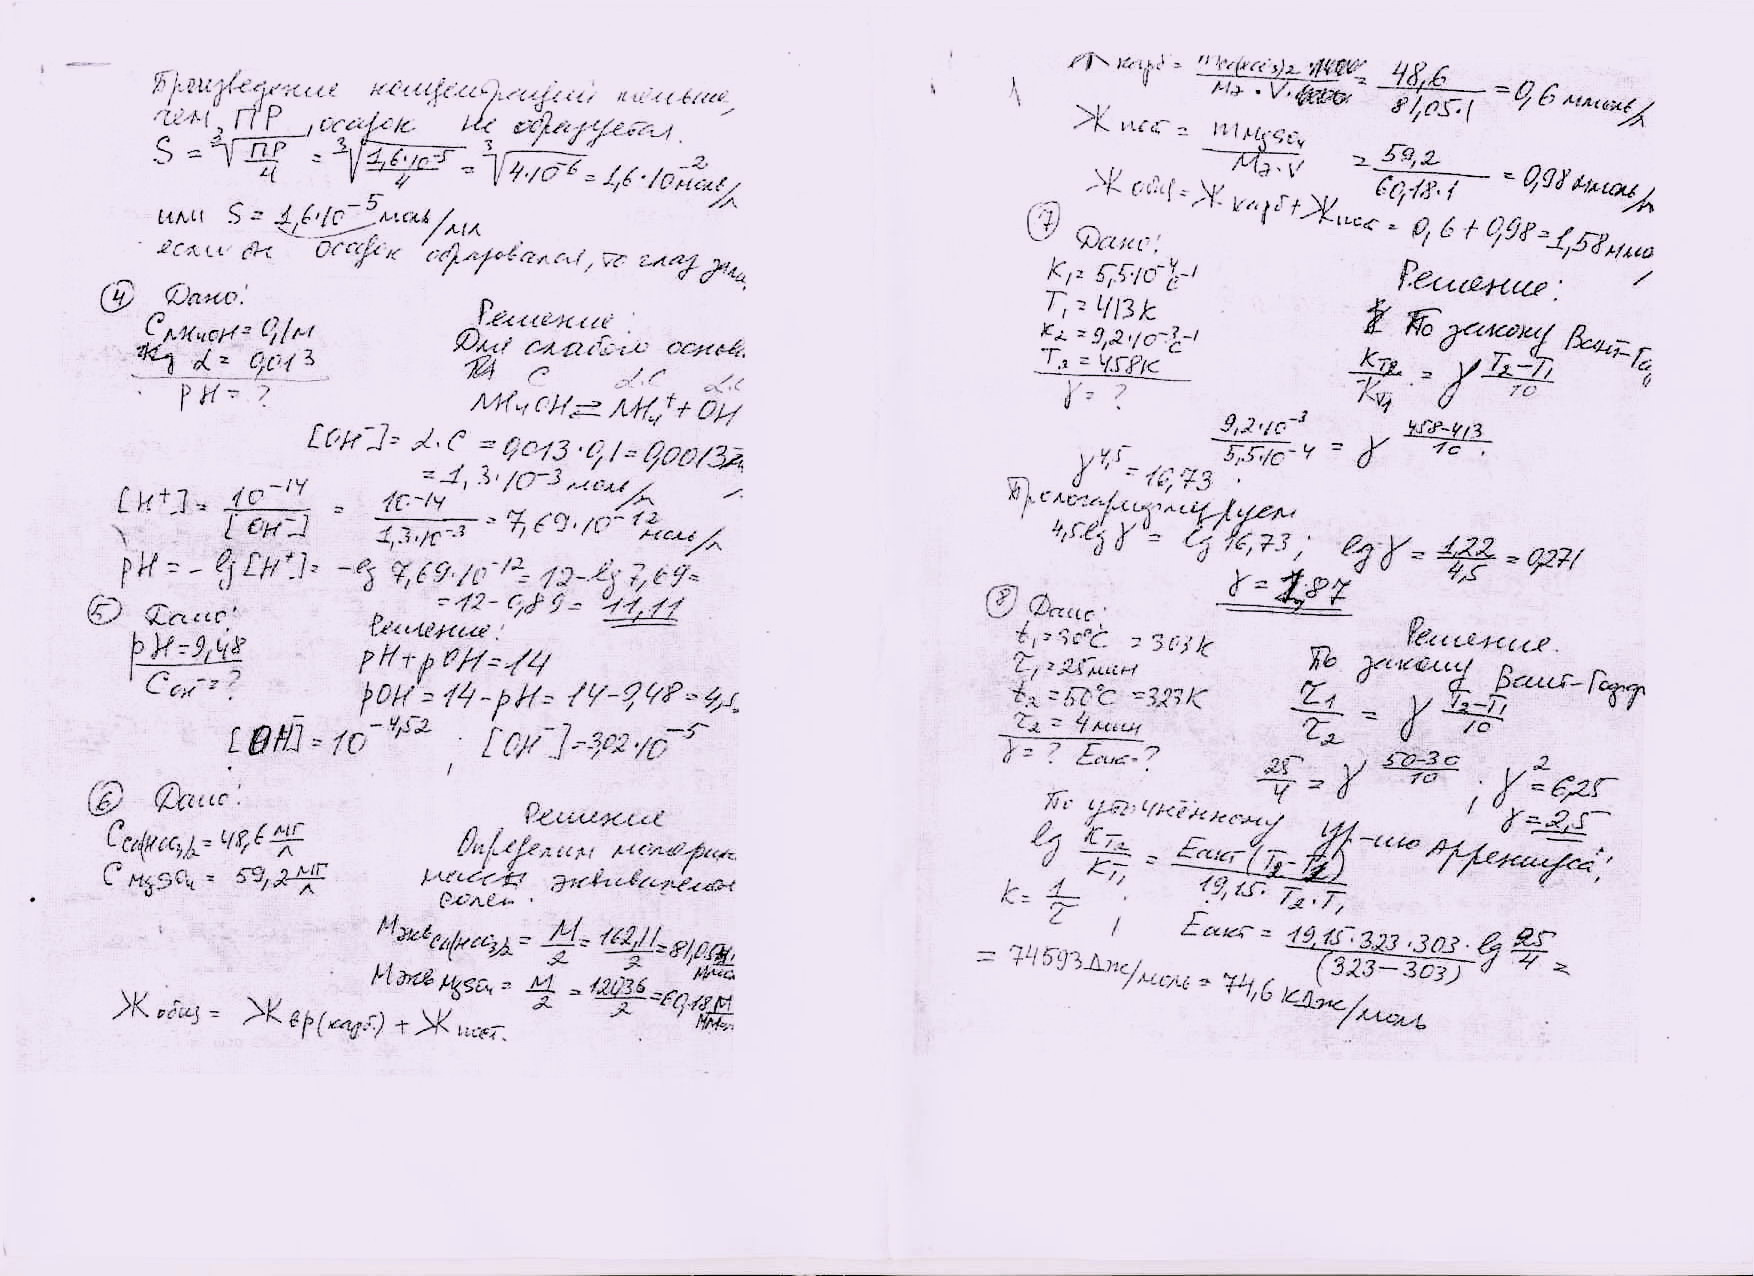 Произведение концентраций меньше,
чем ПР, осадок не образуется.
S = ∛(ПР/4) = ∛(1,6·10⁻⁵/4) = ∛(4·10⁻⁶) = 1,6·10⁻² моль/л
или S = 1,6·10⁻⁵ моль/мл
если бы осадок образовался, то глаз
④ Дано:
Решение:
C NH₄OH = 0,1 М
α = 0,013
pH = ?
Для слабого основ.
C α.C α.C
NH₄OH ⇄ NH₄⁺ + OH
[OH⁻] = α·C = 0,013·0,1 = 0,0013
= 1,3·10⁻³ моль/л
[H⁺] = 10⁻¹⁴/[OH⁻] = 10⁻¹⁴/1,3·10⁻³ = 7,69·10⁻¹² моль/л
pH = −lg[H⁺] = −lg 7,69·10⁻¹² = 12 − lg 7,69 =
= 12 − 0,89 = 11,11
⑤ Дано:
Решение:
pH = 9,48
C OH⁻ = ?
pH + pOH = 14
pOH = 14 − pH = 14 − 9,48 = 4,5
[OH⁻] = 10⁻⁴,⁵² ; [OH⁻] = 3,02·10⁻⁵
⑥ Дано:
Решение
C Ca(HCO₃)₂ = 48,6 мг/л
C MgSO₄ = 59,2 мг/л
Определим молярн
массы эквивалент
солей.
Mэкв Ca(HCO₃)₂ = M/2 = 162,11/2 = 81,05
Mэкв MgSO₄ = M/2 = 120,36/2 = 60,18
Ж общ = Ж вр(карб) + Ж пост.
Ж карб = m Ca(HCO₃)₂ / Mэ·V = 48,6/81,05·1 = 0,6 ммоль/л
Ж пост = m MgSO₄ / Mэ·V = 59,2/60,18·1 = 0,98 ммоль/л
Ж общ = Ж карб + Ж пост = 0,6 + 0,98 = 1,58 ммо
⑦ Дано:
Решение:
K₁ = 5,5·10⁻⁴ с⁻¹
T₁ = 413 К
K₂ = 9,2·10⁻³ с⁻¹
T₂ = 458 К
γ = ?
По закону Вант-Го
K T₂ / K T₁ = γ^((T₂−T₁)/10)
9,2·10⁻³/5,5·10⁻⁴ = γ^((458−413)/10)
γ⁴,⁵ = 16,73
Прологарифмируем
4,5 lg γ = lg 16,73; lg γ = 1,22/4,5 = 0,271
γ = 1,87
⑧ Дано:
Решение.
t₁ = 30°C = 303 К
τ₁ = 25 мин
t₂ = 50°C = 323 К
τ₂ = 4 мин
γ = ? Eакт = ?
По закону Вант-Гофф
τ₁/τ₂ = γ^((T₂−T₁)/10)
25/4 = γ^((50−30)/10) ; γ² = 6,25
γ = 2,5
По уточнённому ур-ию Аррениуса:
lg K T₂ / K T₁ = Eакт(T₂−T₁) / 19,15·T₂·T₁
K = 1/τ ; Eакт = 19,15·323·303·lg 25/4 / (323−303) =
= 74593 Дж/моль = 74,6 кДж/моль